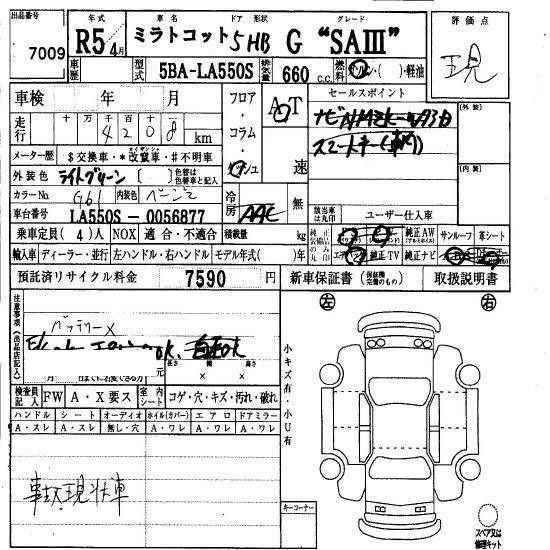 出品番号 年式 車名 ドア形状 グレード 評価点
7009 R5 4月 ミラトコット 5HB G “SAⅢ” 現
車歴 型式 5BA-LA550S 排気量 660 c.c. 燃料 ガソリン・( )・軽油
車検 年 月 フロア・コラム・インパネ AT セールスポイント
走行 十 万 千 百 十 一 4208 km ナビ
メーター歴 $交換車・*改竄車・#不明車 速 スマートキー
外装色 ライトグリーン [ ] 色替は色替車と記入
カラーNo. G61 内装色 ベージュ 冷房 AAC 無
車台番号 LA550S-0056877 該当車は丸印 ユーザー仕入車
乗車定員 (4)人 NOX 適合・不適合 積載量 kg 純正装備品のみ丸印 純正AW (アルミホイル) サンルーフ 革シート
輸入車 ディーラー・並行 左ハンドル・右ハンドル モデル年式( )年 純正TV 純正ナビ
預託済リサイクル料金 7590 円 新車保証書 (保証継承可能のもの) 取扱説明書
注意事項(出品店記入) 左 右
バッテリー×
OK、自走OK
長さ 幅 高さ
× ×
小キズ有・小U有
検査員記入 FW A・X要ス 室内シート コゲ・穴・キズ・汚れ・破れ
ハンドル シート オーディオ ホイル(カバー) エアロ ドアミラー
A・スレ A・スレ 無し・穴 A・ワレ A・ワレ A・ワレ
事故現状車
キーコーナー
スペア又は修理キット
外装
内装